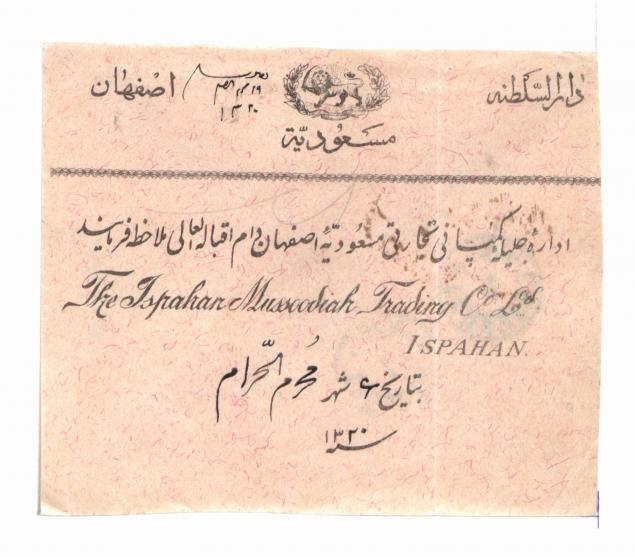 دارالسلطنه اصفهان
۱۳۲۰
مسعودیّة
ادارهٔ جلیلهٔ کمپانی تجارتی مسعودیّهٔ اصفهان دام اقباله العالی ملاحظه فرمایند
The Ispahan Mussoodiah Trading Co. Ld.
ISPAHAN.
بتاریخ ۶ شهر محرم الحرّام
سنه ۱۳۲۰